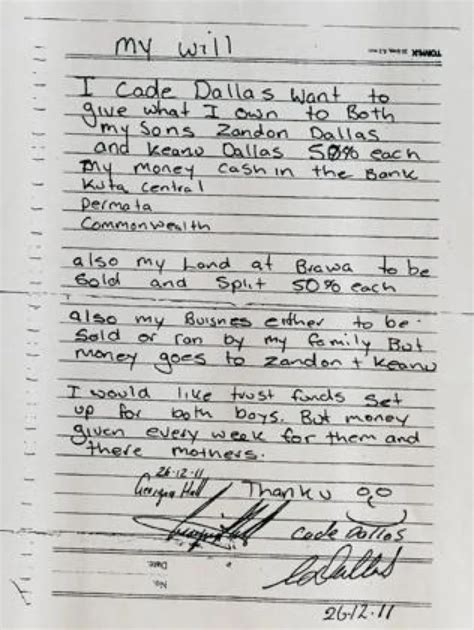 my will
I Cade Dallas want to
give what I own to Both
my Sons Zandon Dallas
and Keanu Dallas 50% each
my money cash in the Bank
Kuta Central
Permata
Commonwealth
also my Land at Brawa to be
Sold and Split 50% each
also my Buisnes either to be
Sold or ran by my family But
money goes to zandon + Keanu
I would like trust funds set
up for both boys. But money
given every week for them and
there mothers.
26-12-11
Georgia Hall
Thank u
Cade Dallas
CDallas
26.12.11
Date
No.